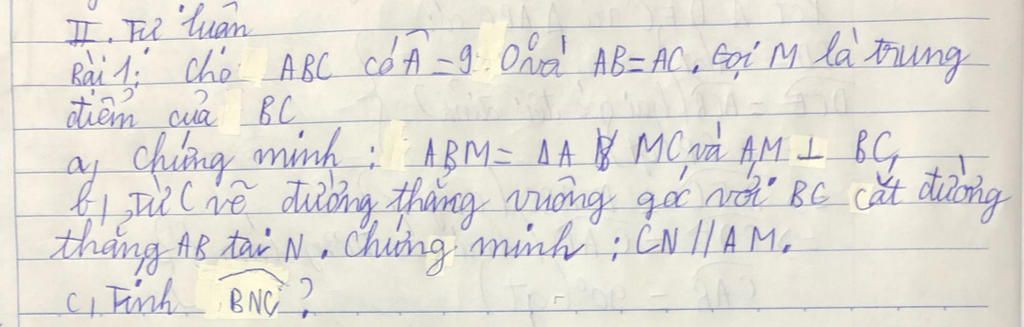 II. Tự luận
Bài 1: Cho ABC có Â = 90⁰ và AB=AC. Gọi M là trung
điểm của BC
a, Chứng minh : ABM = ΔA MC và AM ⊥ BC,
b, Từ C vẽ đường thẳng vuông góc với BC cắt đường
thẳng AB tại N. Chứng minh : CN // AM.
c, Tính BNC ?